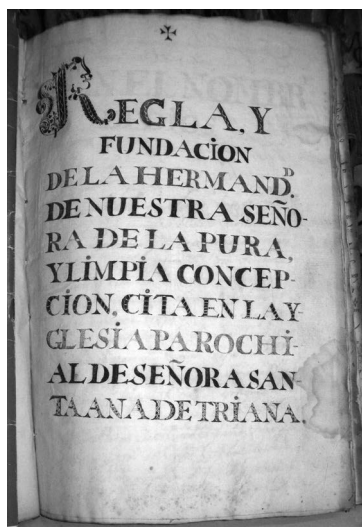 REGLA, Y
FUNDACION
DE LA HERMAND.D
DE NUESTRA SEÑO-
RA DE LA PURA,
Y LIMPIA CONCEP-
CION, CITA EN LA Y-
GLESIA PAROCHI-
AL DE SEÑORA SAN-
TA ANA DE TRIANA.